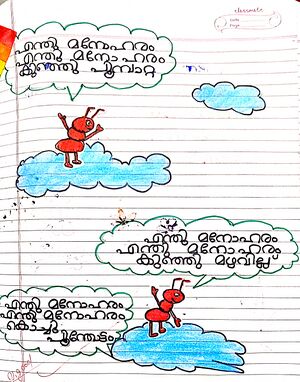 classmate
Date
Page
എന്തു മനോഹരം
എന്തു മനോഹരം
കുഞ്ഞു പൂമ്പാറ്റ
എന്തു മനോഹരം
എന്തു മനോഹരം
കുഞ്ഞു മഴവില്ല്
എന്തു മനോഹരം
എന്തു മനോഹരം
കൊച്ചു
പൂന്തോട്ടം